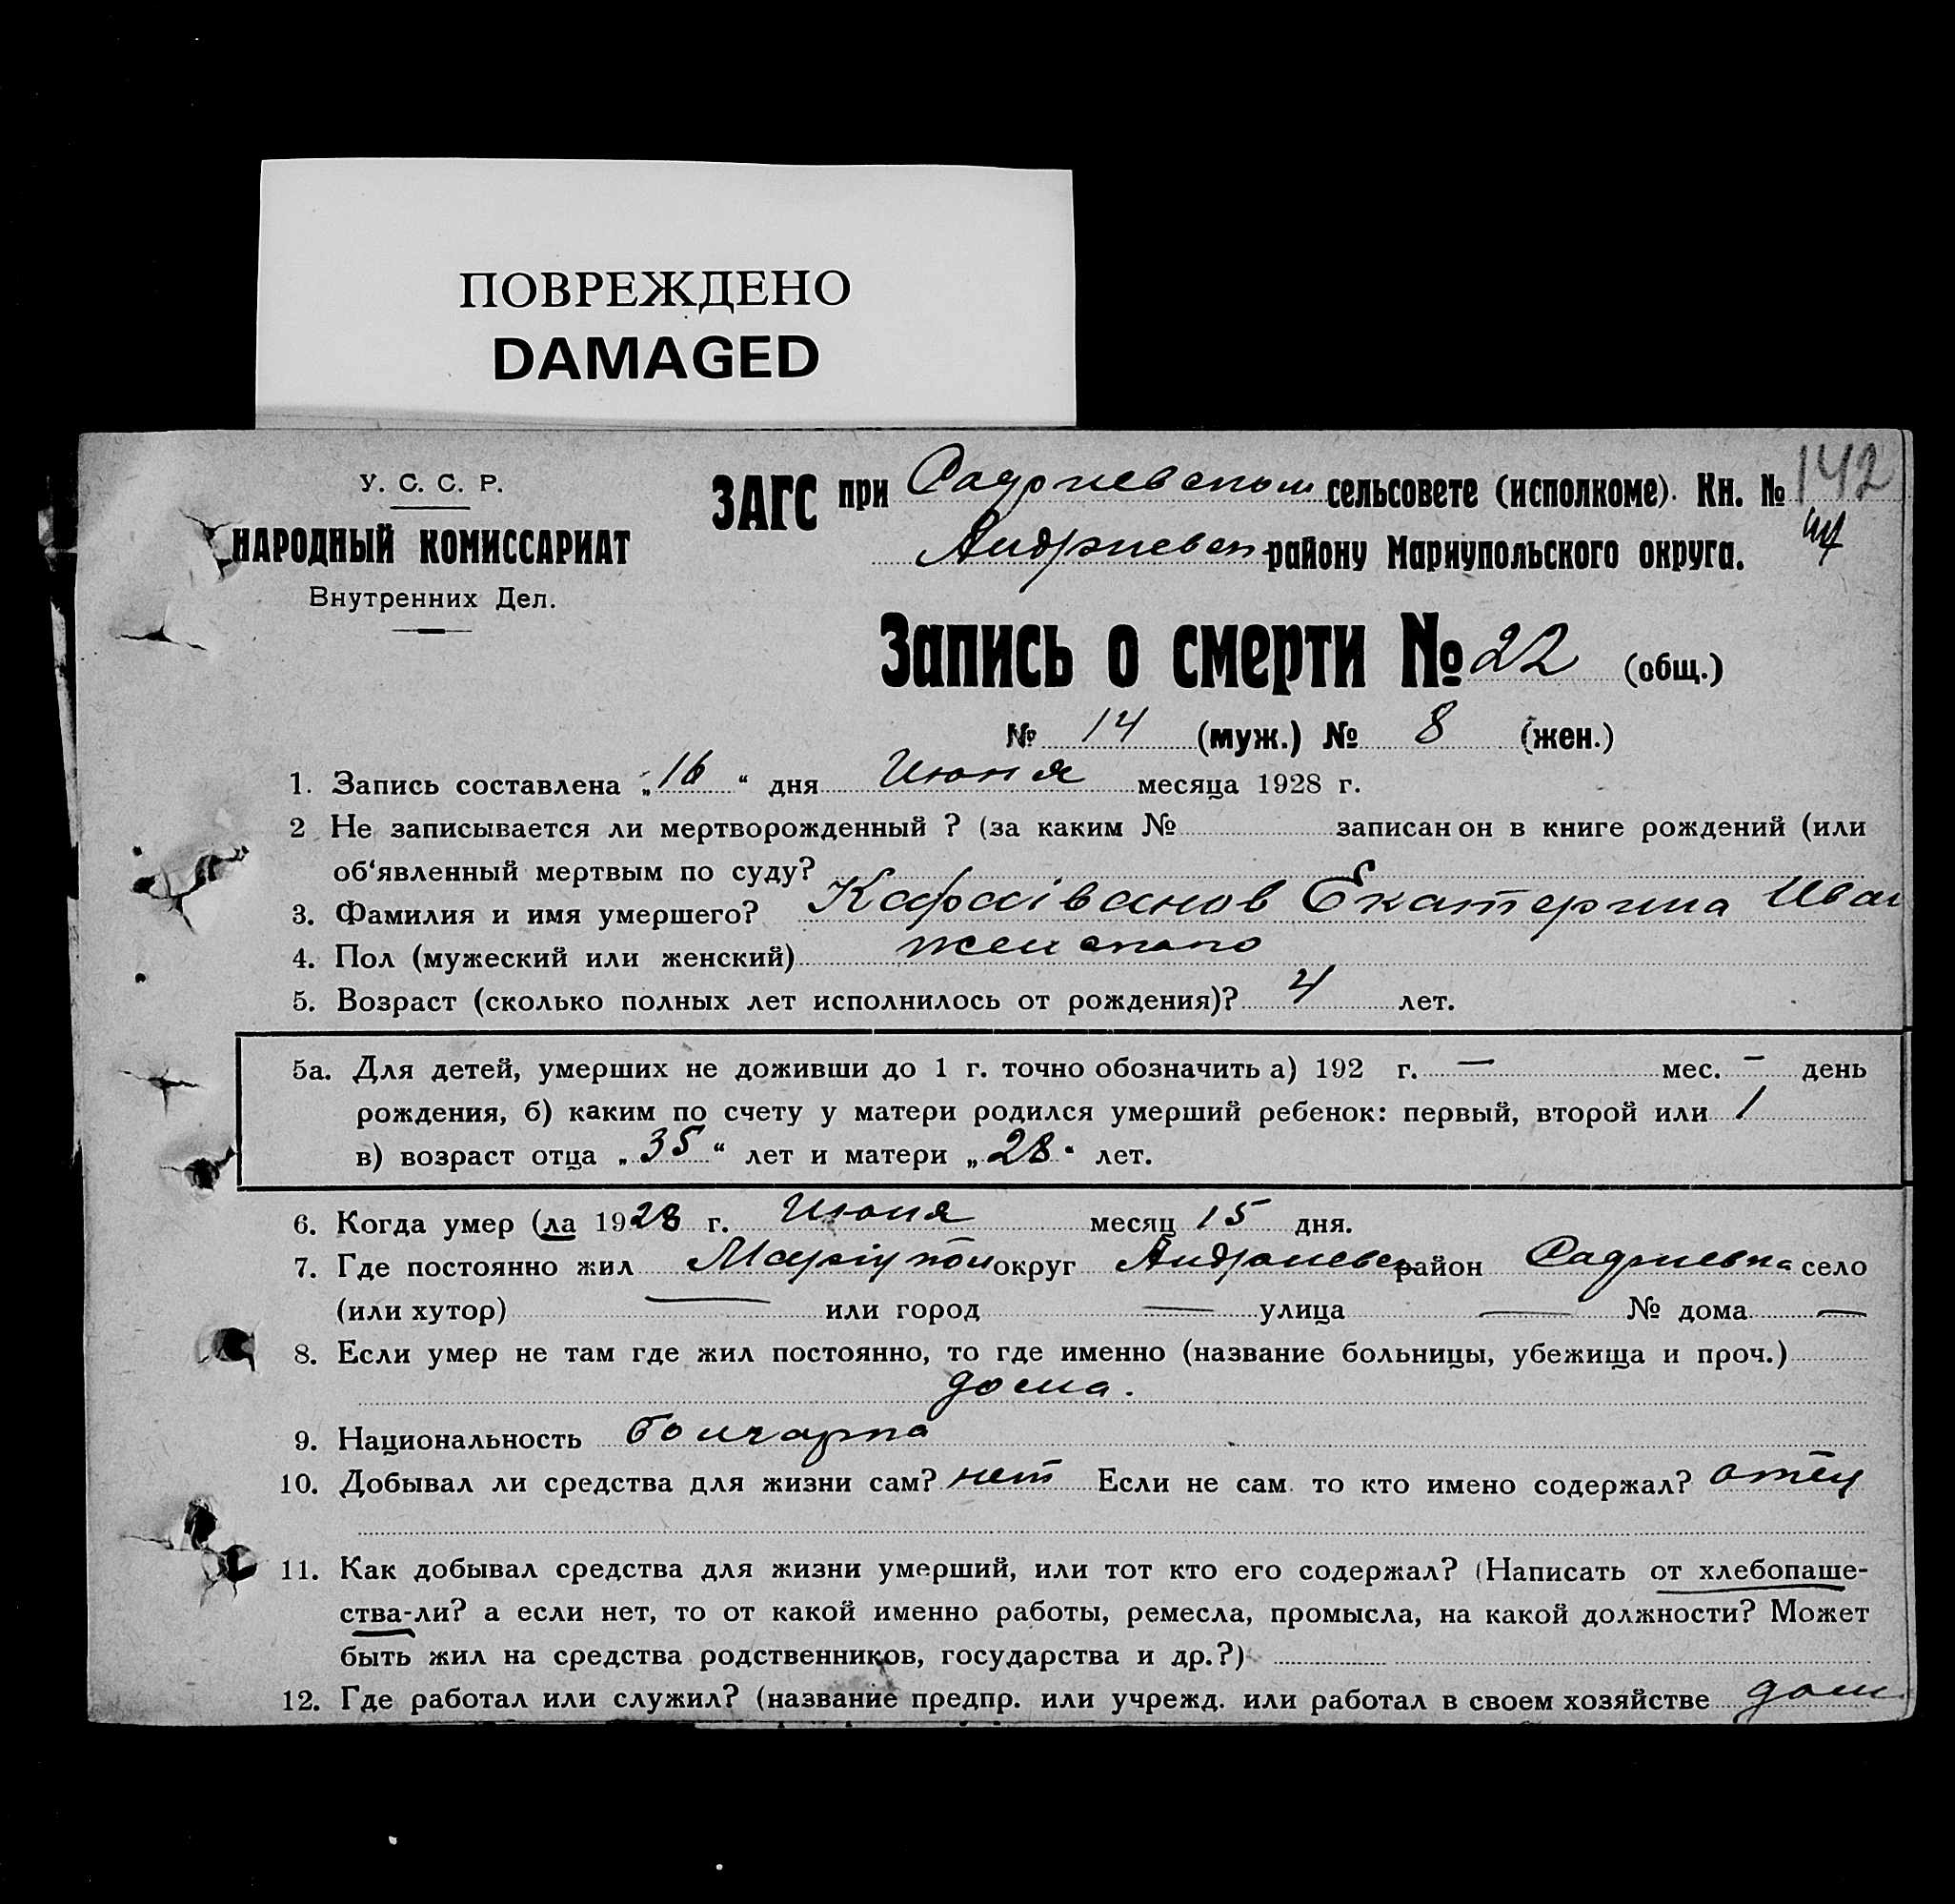 ПОВРЕЖДЕНО
DAMAGED
У. С. С. Р.
НАРОДНЫЙ КОМИССАРИАТ
Внутренних Дел.
ЗАГС при сельсовете (исполкоме). Кн. № 142
району Мариупольского округа.
Запись о смерти № 22 (общ.)
№ 14 (муж.) № 8 (жен.)
1. Запись составлена „16“ дня Июня месяца 1928 г.
2 Не записывается ли мертворожденный ? (за каким № записан он в книге рождений (или
об‘явленный мертвым по суду?
3. Фамилия и имя умершего? Караіванов Екатерина Иван
4. Пол (мужеский или женский) женского
5. Возраст (сколько полных лет исполнилось от рождения)? 4 лет.
5а. Для детей, умерших не доживши до 1 г. точно обозначить а) 192 г. — мес. — день
рождения, б) каким по счету у матери родился умерший ребенок: первый, второй или 1
в) возраст отца „35“ лет и матери „28“ лет.
6. Когда умер (ла 1928 г. Июня месяц 15 дня.
7. Где постоянно жил Маріупол округ Андриевск район село
(или хутор) — или город — улица — № дома —
8. Если умер не там где жил постоянно, то где именно (название больницы, убежища и проч.)
дома.
9. Национальность болгарка
10. Добывал ли средства для жизни сам? нет Если не сам то кто имено содержал? отец
11. Как добывал средства для жизни умерший, или тот кто его содержал? (Написать от хлебопаше-
ства-ли? а если нет, то от какой именно работы, ремесла, промысла, на какой должности? Может
быть жил на средства родственников, государства и др.?)
12. Где работал или служил? (название предпр. или учрежд. или работал в своем хозяйстве дом